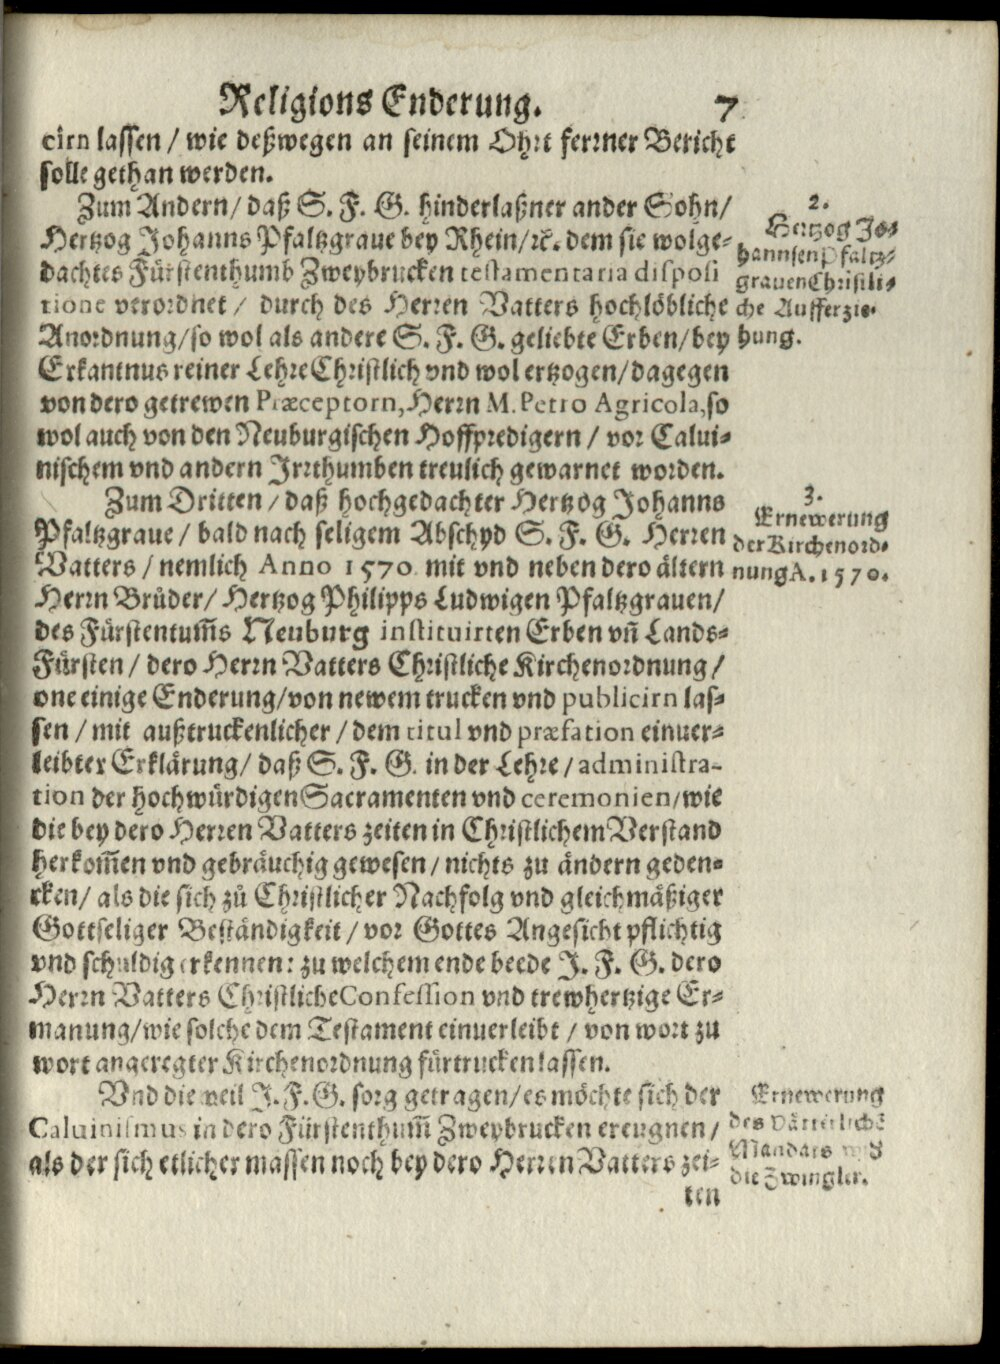 Religions Enderung. 7
cirn lassen / wie deßwegen an seinem Ohrt ferrner Bericht
solle gethan werden.
Zum Andern / daß S. F. G. hinderlaßner ander Sohn /
Hertzog Johanns Pfaltzgraue bey Rhein / ꝛc. dem sie wolge-
dachtes Fürstenthumb Zweybrucken testamentaria disposi
tione verordnet / durch des Herren Vatters hochlöbliche
Anordnung / so wol als andere S. F. G. geliebte Erben / bey
Erkantnus reiner Lehre Christlich vnd wol ertzogen / dagegen
von dero getrewen Præceptorn, Herrn M. Petro Agricola, so
wol auch von den Neuburgischen Hoffpredigern / vor Calui-
nischem vnd andern Irrthumben treulich gewarnet worden.
2.
Hertzog Jo-
hannsen Pfaltz-
grauen Christli-
che Aufferzie-
hung.
Zum Dritten / daß hochgedachter Hertzog Johanns
Pfaltzgraue / bald nach seligem Abschyd S. F. G. Herren
Vatters / nemlich Anno 1570 mit vnd neben dero ältern
Herrn Brüder / Hertzog Philipps Ludwigen Pfaltzgrauen /
des Fürstentum̄s Neuburg instituirten Erben vn̄ Lands-
Fürsten / dero Herrn Vatters Christliche Kirchenordnung /
one einige Enderung / von newem trucken vnd publicirn las-
sen / mit außtruckenlicher / dem titul vnd præfation einuer-
leibter Erklärung / daß S. F. G. in der Lehre / administra-
tion der hochwürdigen Sacramenten vnd ceremonien / wie
die bey dero Herren Vatters zeiten in Christlichem Verstand
herkom̄en vnd gebräuchig gewesen / nichts zu ändern geden-
cken / als die sich zů Christlicher Nachfolg vnd gleichmäßiger
Gottseliger Beständigkeit / vor Gottes Angesicht pflichtig
vnd schuldig erkennen: zu welchem ende beede J. F. G. dero
Herrn Vatters Christliche Confession vnd trewhertzige Er-
manung / wie solche dem Testament einuerleibt / von wort zu
wort angeregter Kirchenordnung fürtrucken lassen.
3.
Ernewerung
der Kirchenord-
nung A. 1570.
Vnd die weil J. F. G. sorg getragen / es möchte sich der
Caluinismus in dero Fürstenthum̄ Zweybrucken ereugnen /
als der sich etlicher massen noch bey dero Herren Vatters zei-
ten
Ernewerung
des Vätterlichē
Mandats
die Zwingler.